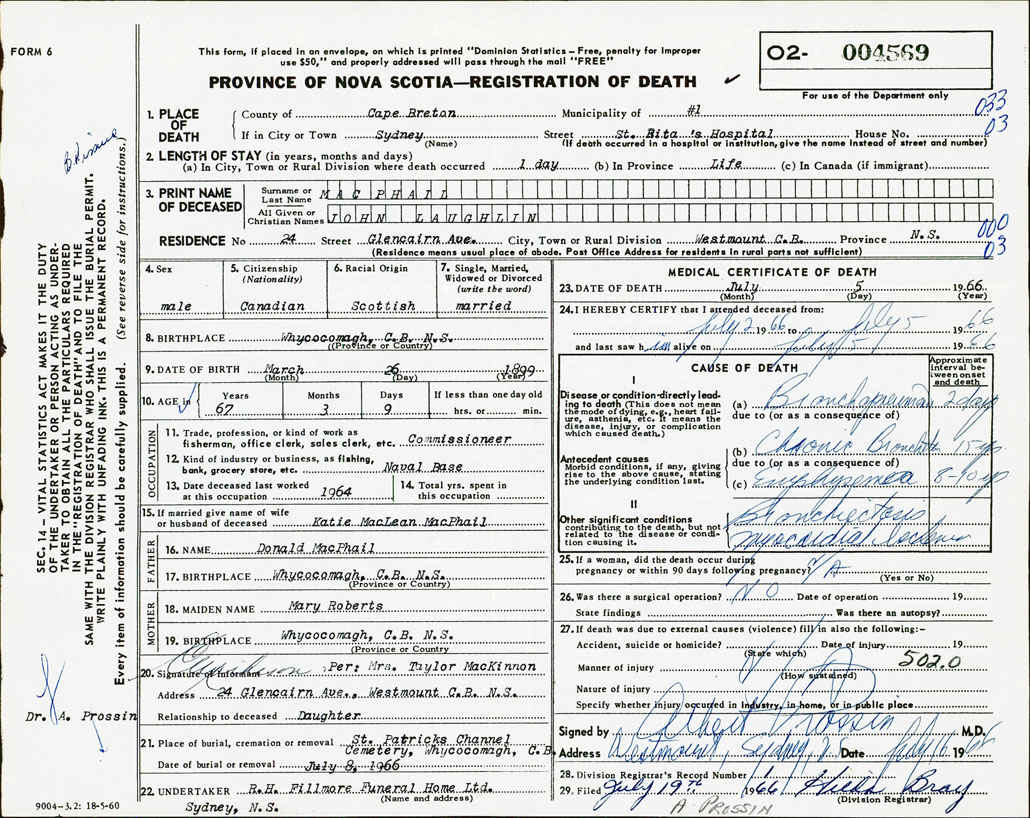 FORM 6
This form, if placed in an envelope, on which is printed "Dominion Statistics – Free, penalty for improper
use $50," and properly addressed will pass through the mail "FREE"
PROVINCE OF NOVA SCOTIA—REGISTRATION OF DEATH
02- 004569
For use of the Department only
033
03
1. PLACE OF DEATH
County of Cape Breton Municipality of #1
If in City or Town Sydney Street St. Rita 's Hospital House No.
(Name) (If death occurred in a hospital or institution, give the name instead of street and number)
2. LENGTH OF STAY (in years, months and days)
(a) In City, Town or Rural Division where death occurred 1 day (b) In Province Life (c) In Canada (if immigrant)
3. PRINT NAME OF DECEASED
Surname or Last Name MAC PHAIL
All Given or Christian Names JOHN LAUGHLIN
000
03
RESIDENCE No 24 Street Glencairn Ave. City, Town or Rural Division Westmount C.B. Province N.S.
(Residence means usual place of abode. Post Office Address for residents in rural parts not sufficient)
4. Sex
male
5. Citizenship (Nationality)
Canadian
6. Racial Origin
Scottish
7. Single, Married, Widowed or Divorced (write the word)
married
8. BIRTHPLACE Whycocomagh, C.B. N.S.
(Province or Country)
9. DATE OF BIRTH March 26 1899
(Month) (Day) (Year)
10. AGE in
Years Months Days If less than one day old
67 3 9 hrs. or min.
OCCUPATION
11. Trade, profession, or kind of work as
fisherman, office clerk, sales clerk, etc. Commissioneer
12. Kind of industry or business, as fishing,
bank, grocery store, etc. Naval Base
13. Date deceased last worked
at this occupation 1964
14. Total yrs. spent in
this occupation
15. If married give name of wife
or husband of deceased Katie MacLean MacPhail
FATHER
16. NAME Donald MacPhail
17. BIRTHPLACE Whycocomagh, C.B. N.S.
(Province or Country)
MOTHER
18. MAIDEN NAME Mary Roberts
19. BIRTHPLACE Whycocomagh, C.B. N.S.
(Province or Country)
20. Signature of informant Per: Mrs. Taylor MacKinnon
Address 24 Glencairn Ave., Westmount C.B. N.S.
Relationship to deceased Daughter
21. Place of burial, cremation or removal St. Patricks Channel
Cemetery, Whycocomagh, C.B.
Date of burial or removal July 8, 1966
22. UNDERTAKER R.H. Fillmore Funeral Home Ltd.
(Name and address)
Sydney, N.S.
MEDICAL CERTIFICATE OF DEATH
23. DATE OF DEATH July 5 1966.
(Month) (Day) (Year)
24. I HEREBY CERTIFY that I attended deceased from:
July 2 1966 to July 5 1966
and last saw him alive on July 5 1966
CAUSE OF DEATH
Approximate interval between onset and death
I
Disease or condition directly leading to death (This does not mean the mode of dying, e.g., heart failure, asthenia, etc. It means the disease, injury, or complication which caused death.)
(a) Bronchopneumonia 2 days
due to (or as a consequence of)
Antecedent causes
Morbid conditions, if any, giving rise to the above cause, stating the underlying condition last.
(b) Chronic Bronchitis 15 yr.
due to (or as a consequence of)
(c) Emphysema 8-10 yr
II
Other significant conditions
contributing to the death, but not related to the disease or condition causing it.
Bronchiectasis
Myocardial Ischemia
25. If a woman, did the death occur during
pregnancy or within 90 days following pregnancy? N/A
(Yes or No)
26. Was there a surgical operation? NO Date of operation 19
State findings Was there an autopsy?
27. If death was due to external causes (violence) fill in also the following:–
Accident, suicide or homicide? Date of injury 19
(State which)
Manner of injury 502.0
(How sustained)
Nature of injury
Specify whether injury occurred in industry, in home, or in public place
Signed by Albert Prossin M.D.
Address Westmount, Sydney, N.S. Date July 6 1966
28. Division Registrar's Record Number
29. Filed July 19th 1966 Hilda Bray
(Division Registrar)
A PROSSIN
SEC. 14 – VITAL STATISTICS ACT MAKES IT THE DUTY
OF THE UNDERTAKER OR PERSON ACTING AS UNDER-
TAKER TO OBTAIN ALL THE PARTICULARS REQUIRED
IN THE "REGISTRATION OF DEATH" AND TO FILE THE
SAME WITH THE DIVISION REGISTRAR WHO SHALL ISSUE THE BURIAL PERMIT.
WRITE PLAINLY WITH UNFADING INK. THIS IS A PERMANENT RECORD.
Every item of information should be carefully supplied. (See reverse side for instructions.)
Dr. A. Prossin
9004-3.2: 18-5-60